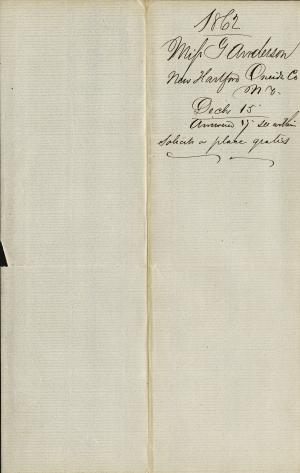 1862
Miss G Anderson
New Hartford Oneida Co
N.Y.
Decbr 15
Answered 17 see within
Solicits a place gratis